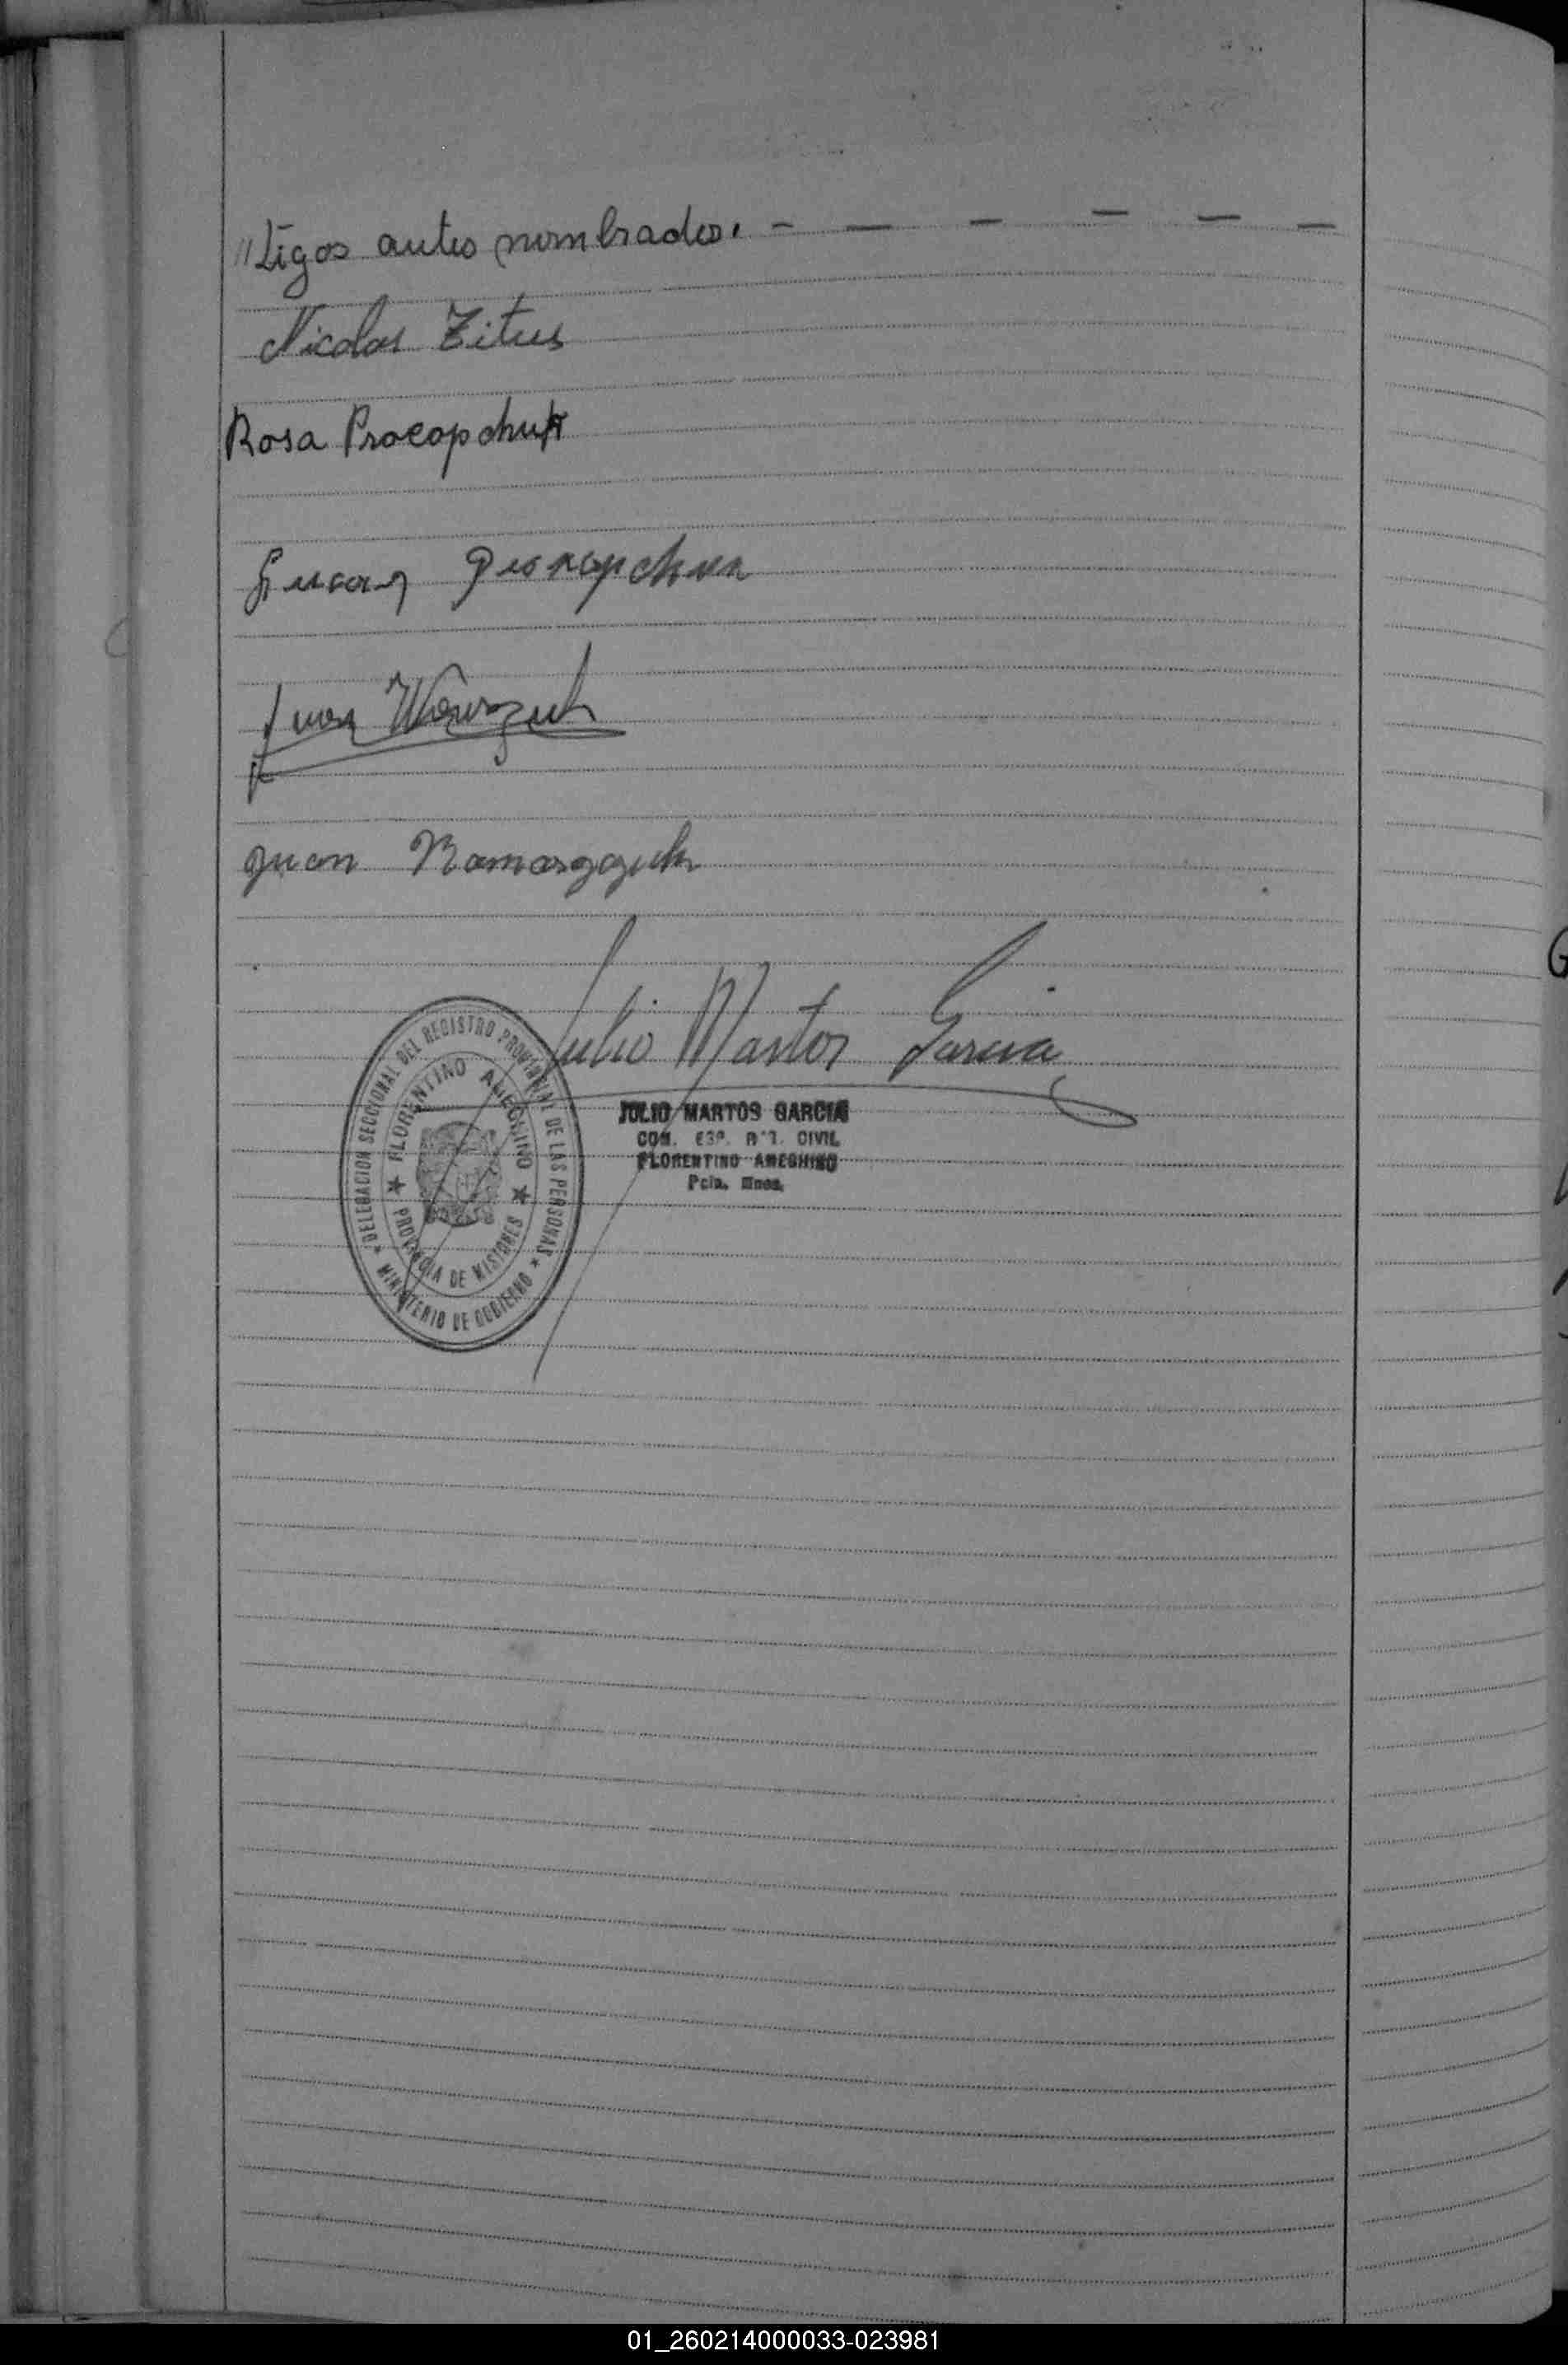 //tigos antes nombrados. - — - — — —
Nicolas Titus
Rosa Procopchuk
Juan
Juan
Julio Martos Garcia
DELEGACION SECCIONAL DEL REGISTRO PROVINCIAL DE LAS PERSONAS
★ FLORENTINO AMEGHINO ★
PROVINCIA DE MISIONES
★ MINISTERIO DE GOBIERNO ★
JULIO MARTOS GARCIA
CIVIL
FLORENTINO AMEGHINO
Pcia. Mnes.
01_260214000033-023981